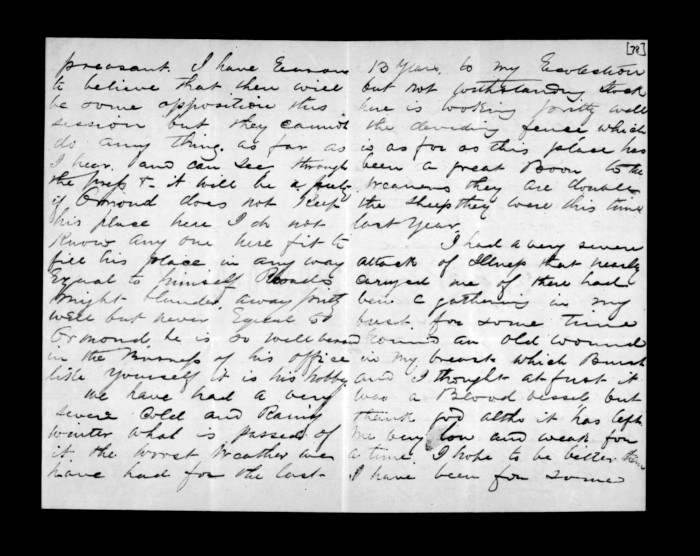 [72]
preasant. I have Eearson
to believe that their will
be some opposition this
session but they cannot
do any thing. as far as
I hear. and can see through
the press & it will be a
if Ormond does not Keep
his place here I do not
Know any one here fit to
fill his place in any way
Equal to himself
might away
well but never Equal to
Ormond, he is so well
in the of his office
like yourself it is his hobby
we have had a very
severe Cold and Rainy
winter what is passed of
it. the worst Weather we
have had for the last
13 Years. to my Ecolection
but not withstanding stock
here is looking pritty well
the deviding fence which
is as far as this place has
been a great Boon to the
they are double
the sheep they were this time
last Year.
I had a very severe
attack of Illness that nearly
carryed me of there had
been a gathering in my
for some time
an old wound
in my breast which Burst
and I thought at first it
was a Blood vessel but
thank god altho it has left
me very low and weak for
a time. I hope to be better then
I have been for some